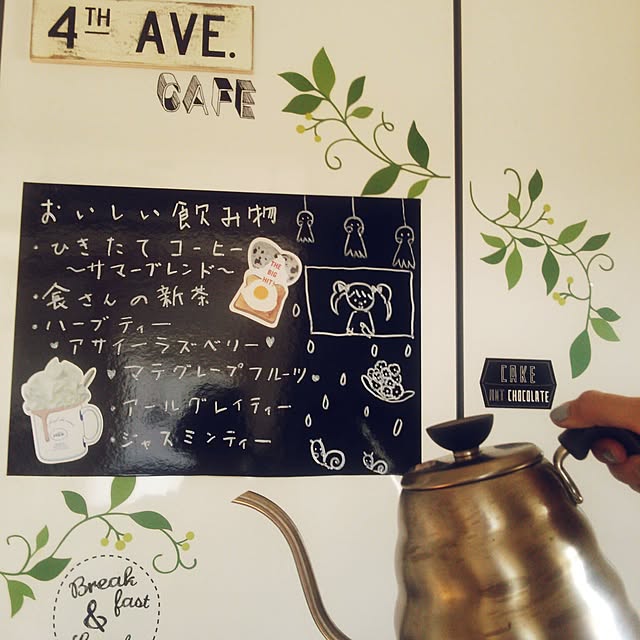 4TH AVE.
CAFE
おいしい飲み物
・ひきたてコーヒー
〜サマーブレンド〜
THE
BIG
HIT!
・食さんの新茶
・ハーブティー
・アサイーラズベリー♥
・マテグレープフルーツ♥
・アールグレイティー
・ジャスミンティー
CAKE
HOT CHOCOLATE
Break
& fast